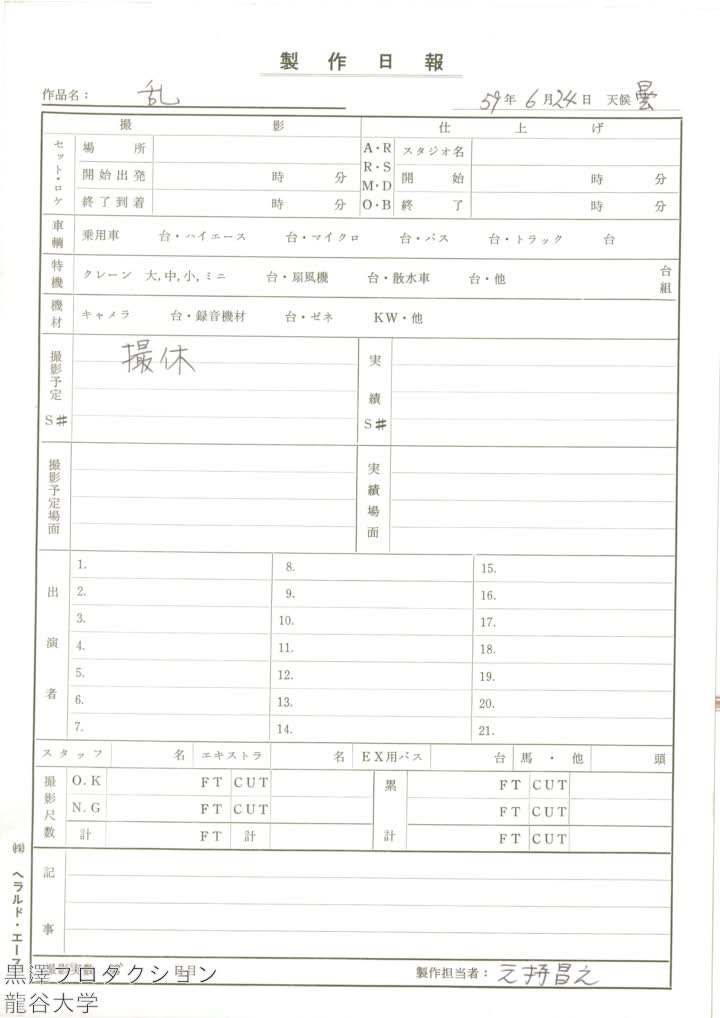 製作日報
作品名： 乱 59年 6月24日 天候 曇
撮影 仕上げ
セット・ロケ 場所 A・R R・S M・D O・B スタジオ名
開始出発 時 分 開始 時 分
終了到着 時 分 終了 時 分
車輌 乗用車 台・ハイエース 台・マイクロ 台・バス 台・トラック 台
特機 クレーン 大,中,小,ミニ 台・扇風機 台・散水車 台・他 台組
機材 キャメラ 台・録音機材 台・ゼネ KW・他
撮影予定S# 撮休 実績S#
撮影予定場面 実績場面
出演者
1. 8. 15.
2. 9. 16.
3. 10. 17.
4. 11. 18.
5. 12. 19.
6. 13. 20.
7. 14. 21.
スタッフ 名 エキストラ 名 EX用バス 台 馬・他 頭
撮影尺数 O.K FT CUT 累計 FT CUT
N.G FT CUT FT CUT
計 FT 計 FT CUT
記事
撮影実数 日目 製作担当者： 元持昌之
㈱ヘラルド・エース
黒澤プロダクション
龍谷大学